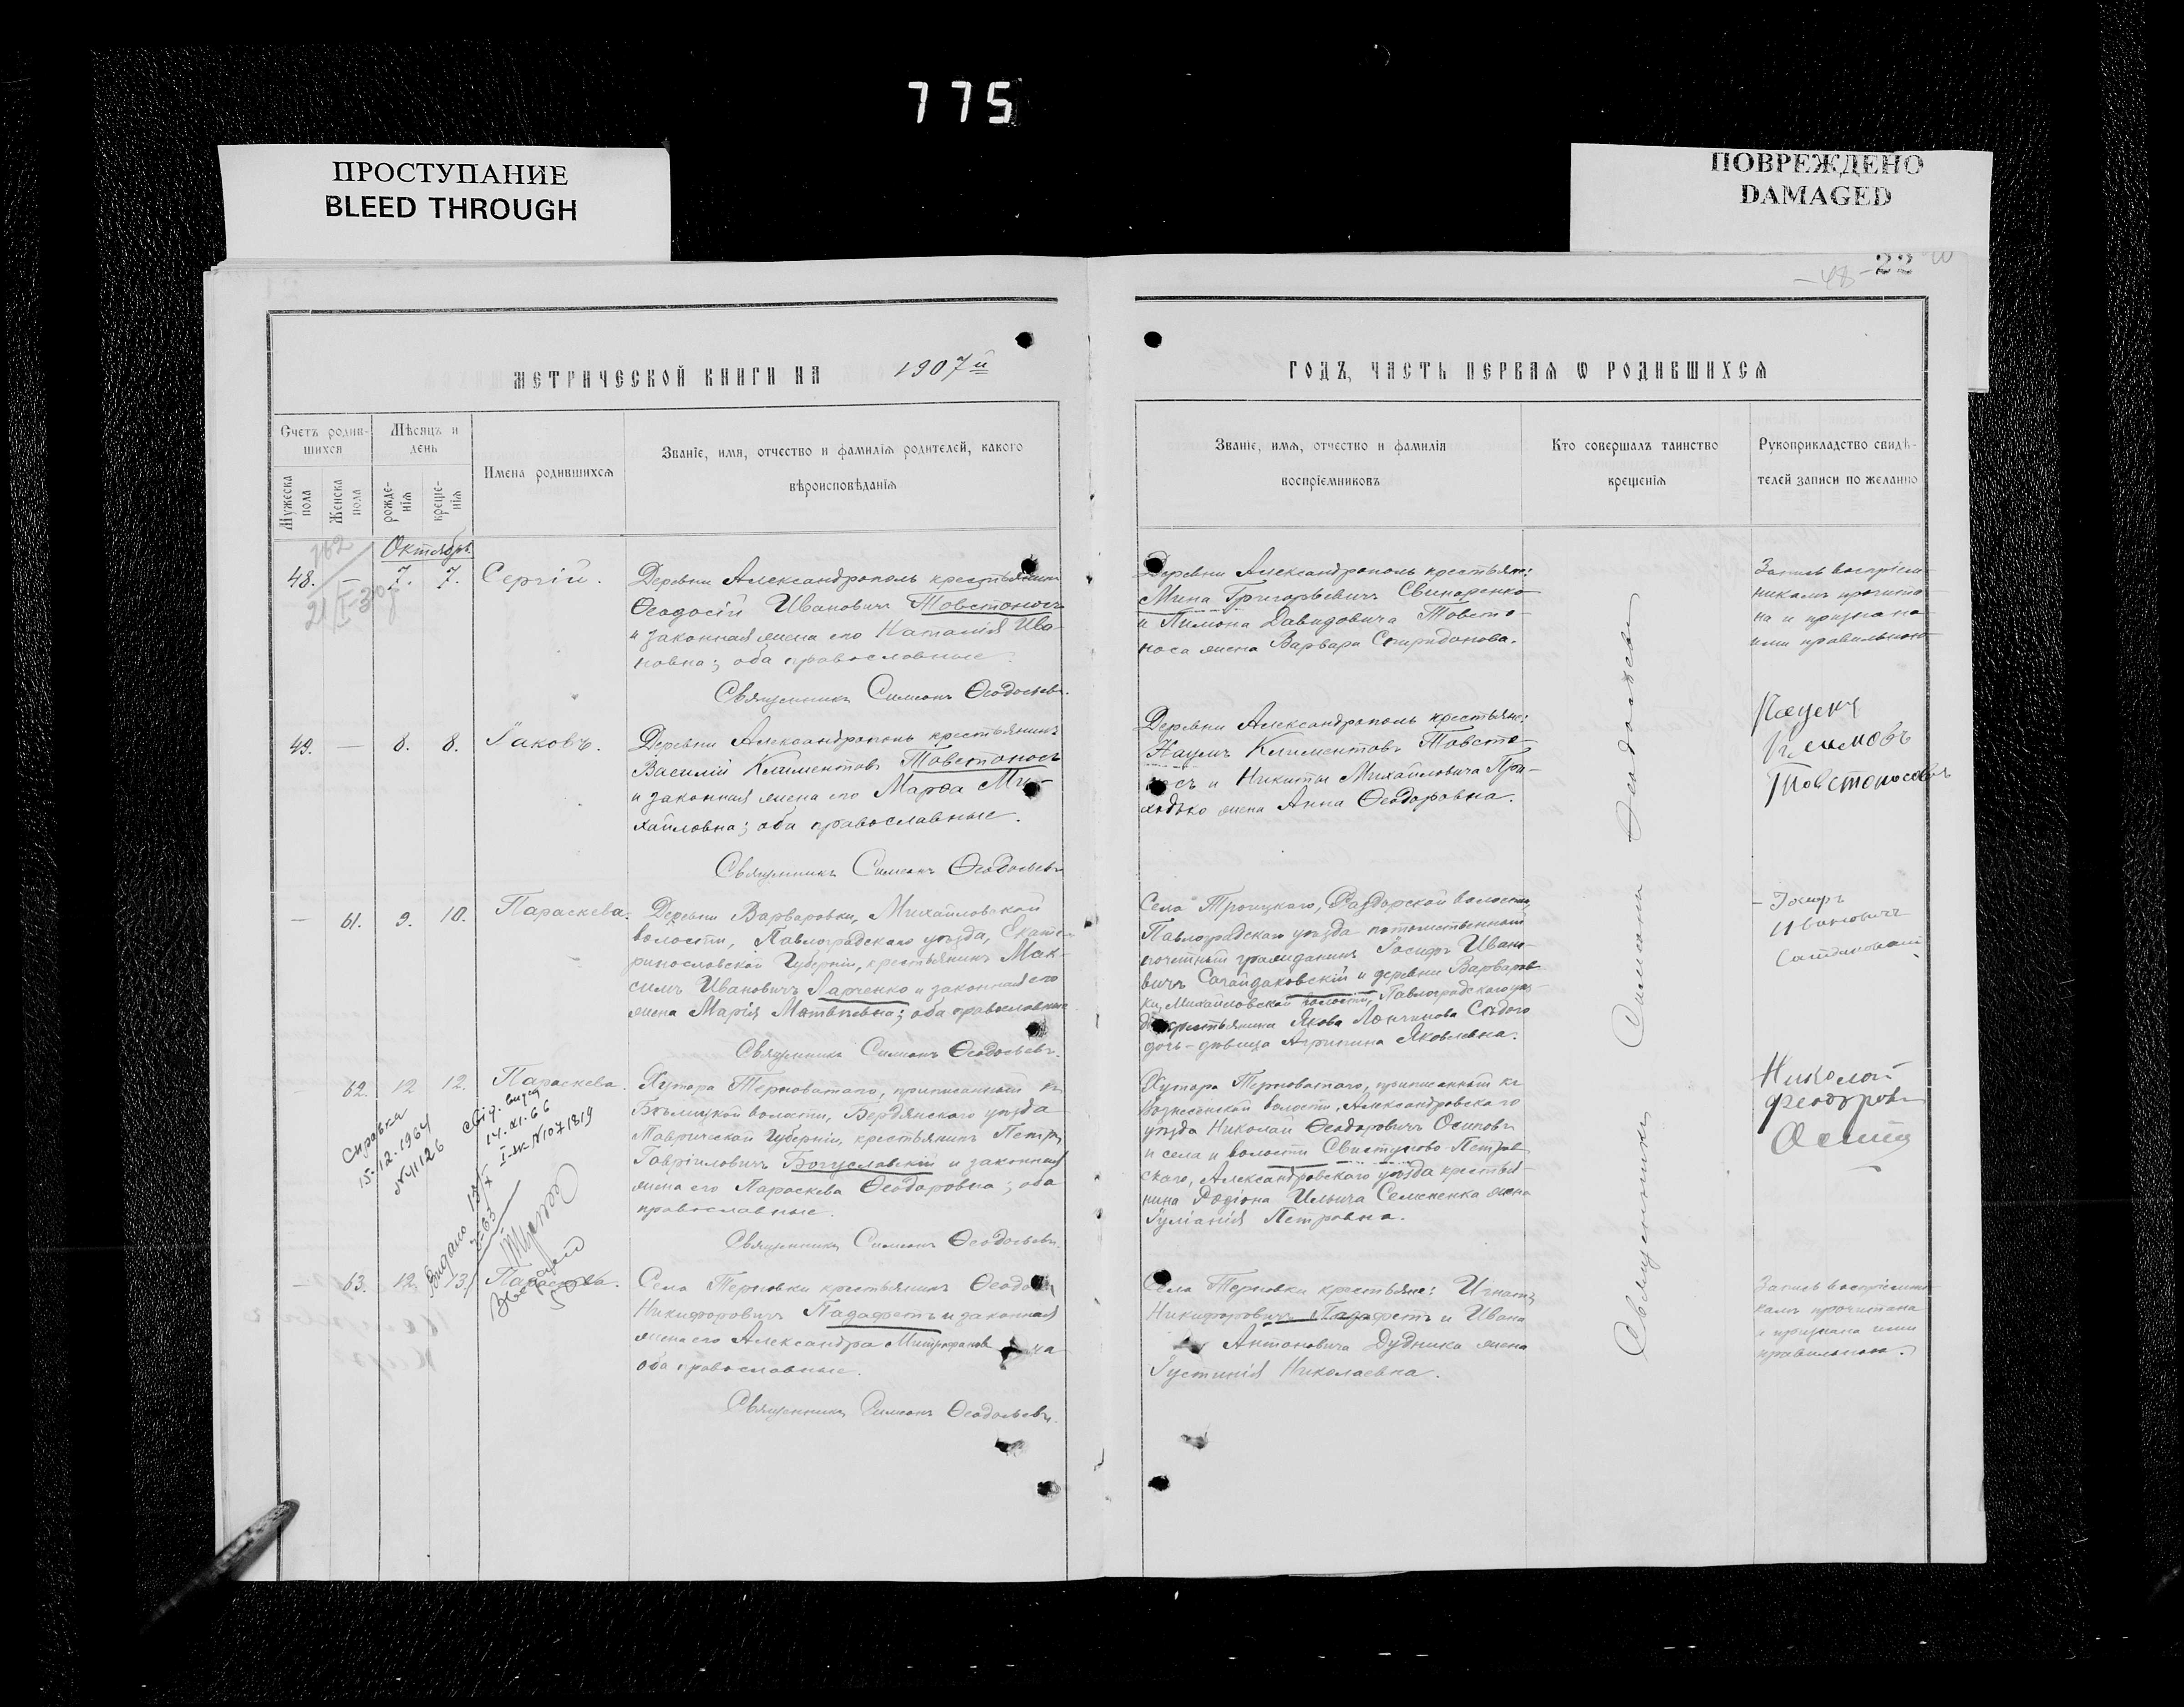 775
ПРОСТУПАНИЕ
BLEED THROUGH
ПОВРЕЖДЕНО
DAMAGED
- 48 -
22
МЕТРИЧЕСКОЙ КНИГИ НА 1907й
ГОДЪ, ЧАСТЬ ПЕРВАЯ Ѡ РОДИВШИХСЯ
Счетъ родив-
шихся
Мужеска
пола
Женска
пола
Мѣсяцъ и
день
рожде-
нія
креще-
нія
Имена родившихся
Званіе, имя, отчество и фамилія родителей, какого
вѣроисповѣданія
Званіе, имя, отчество и фамилія
воспріемниковъ
Кто совершалъ таинство
крещенія
Рукоприкладство свидѣ-
телей записи по желанію
Октябрь
48. — 7. 7. Сергій.
Деревни Александрополь крестьянинъ
Ѳеодосій Ивановичъ Товстоносъ
и законная жена его Наталія Ива-
новна; оба православные.
Священникъ Симеонъ Ѳеодосьевъ.
Деревни Александрополь крестьяне:
Мина Григорьевичъ Свинаренко
и Пимона Давидовича Товсто-
носа жена Варвара Спиридонова.
Запись воспріем-
никамъ прочита-
на и признана
ими правильною
49. — 8. 8. Іаковъ.
Деревни Александрополь крестьянинъ
Василій Климентовъ Товстоносъ
и законная жена его Марѳа Ми-
хайловна; оба православные.
Священникъ Симеонъ Ѳеодосьевъ
Деревни Александрополь крестьяне:
Наумъ Климентовъ Товсто-
носъ и Никиты Михайловича При-
ходько жена Анна Ѳеодоровна.
Товстоносовъ
— 61. 9. 10. Параскева.
Деревни Варваровки, Михайловской
волости, Павлоградскаго уѣзда, Екате-
ринославской Губерніи, крестьянинъ Мак-
симъ Ивановичъ Ларченко и законная его
жена Марія Матвѣевна; оба православные
Священникъ Симеонъ Ѳеодосьевъ.
Села Троицкаго, Раздорской волости,
Павлоградскаго уѣзда потомственный
почетный гражданинъ Іосифъ Ивано-
вичъ Сагайдаковскій и деревни Варваров-
ки, Михайловской волости, Павлоградскаго уѣз-
да крестьянина Якова Сѣдого
дочь-дѣвица Агрипина Яковлевна.
Ивановичъ
— 62. 12 12. Параскева.
Хутора Терноватаго, приписанный къ
волости, Бердянскаго уѣзда
Таврической Губерніи, крестьянинъ Петръ
Гавріиловичъ Богуславскій и законная
жена его Параскева Ѳеодоровна; оба
православные.
Священникъ Симеонъ Ѳеодосьевъ.
Хутора Терноватаго, приписанный къ
Вознесенской волости, Александровскаго
уѣзда Николай Ѳеодоровичъ Осиповъ
и села и волости Свистуново-Петров-
скаго, Александровскаго уѣзда крестья-
нина Родіона Ильича Семененка жена
Іуліанія Петровна.
Николай
Справка
15-12-1964
N41126
14.XI.66
I-ЖС N1071819
Видано
— 63. 12. 13. Параскева.
Села Терновки крестьянинъ Ѳеодоръ
Никифоровичъ Падафетъ и законная
жена его Александра Митрофановна
оба православные.
Священникъ Симеонъ Ѳеодосьевъ.
Села Терновки крестьяне: Игнатъ
Никифоровичъ Падафетъ и Ивана
Антоновича Дудника жена
Іустинія Николаевна.
Запись воспріемни-
камъ прочитана
и признана ими
правильною.
Священникъ Симеонъ Ѳеодосьевъ